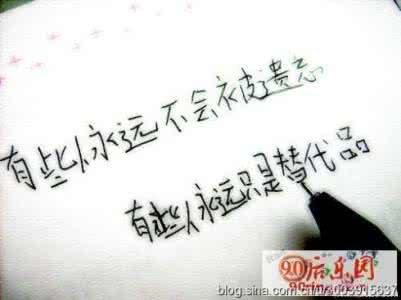 有些人永远不会被遗忘
有些人永远只是替代品
90后乐园
blog.sina.com.cn/u/3003915637